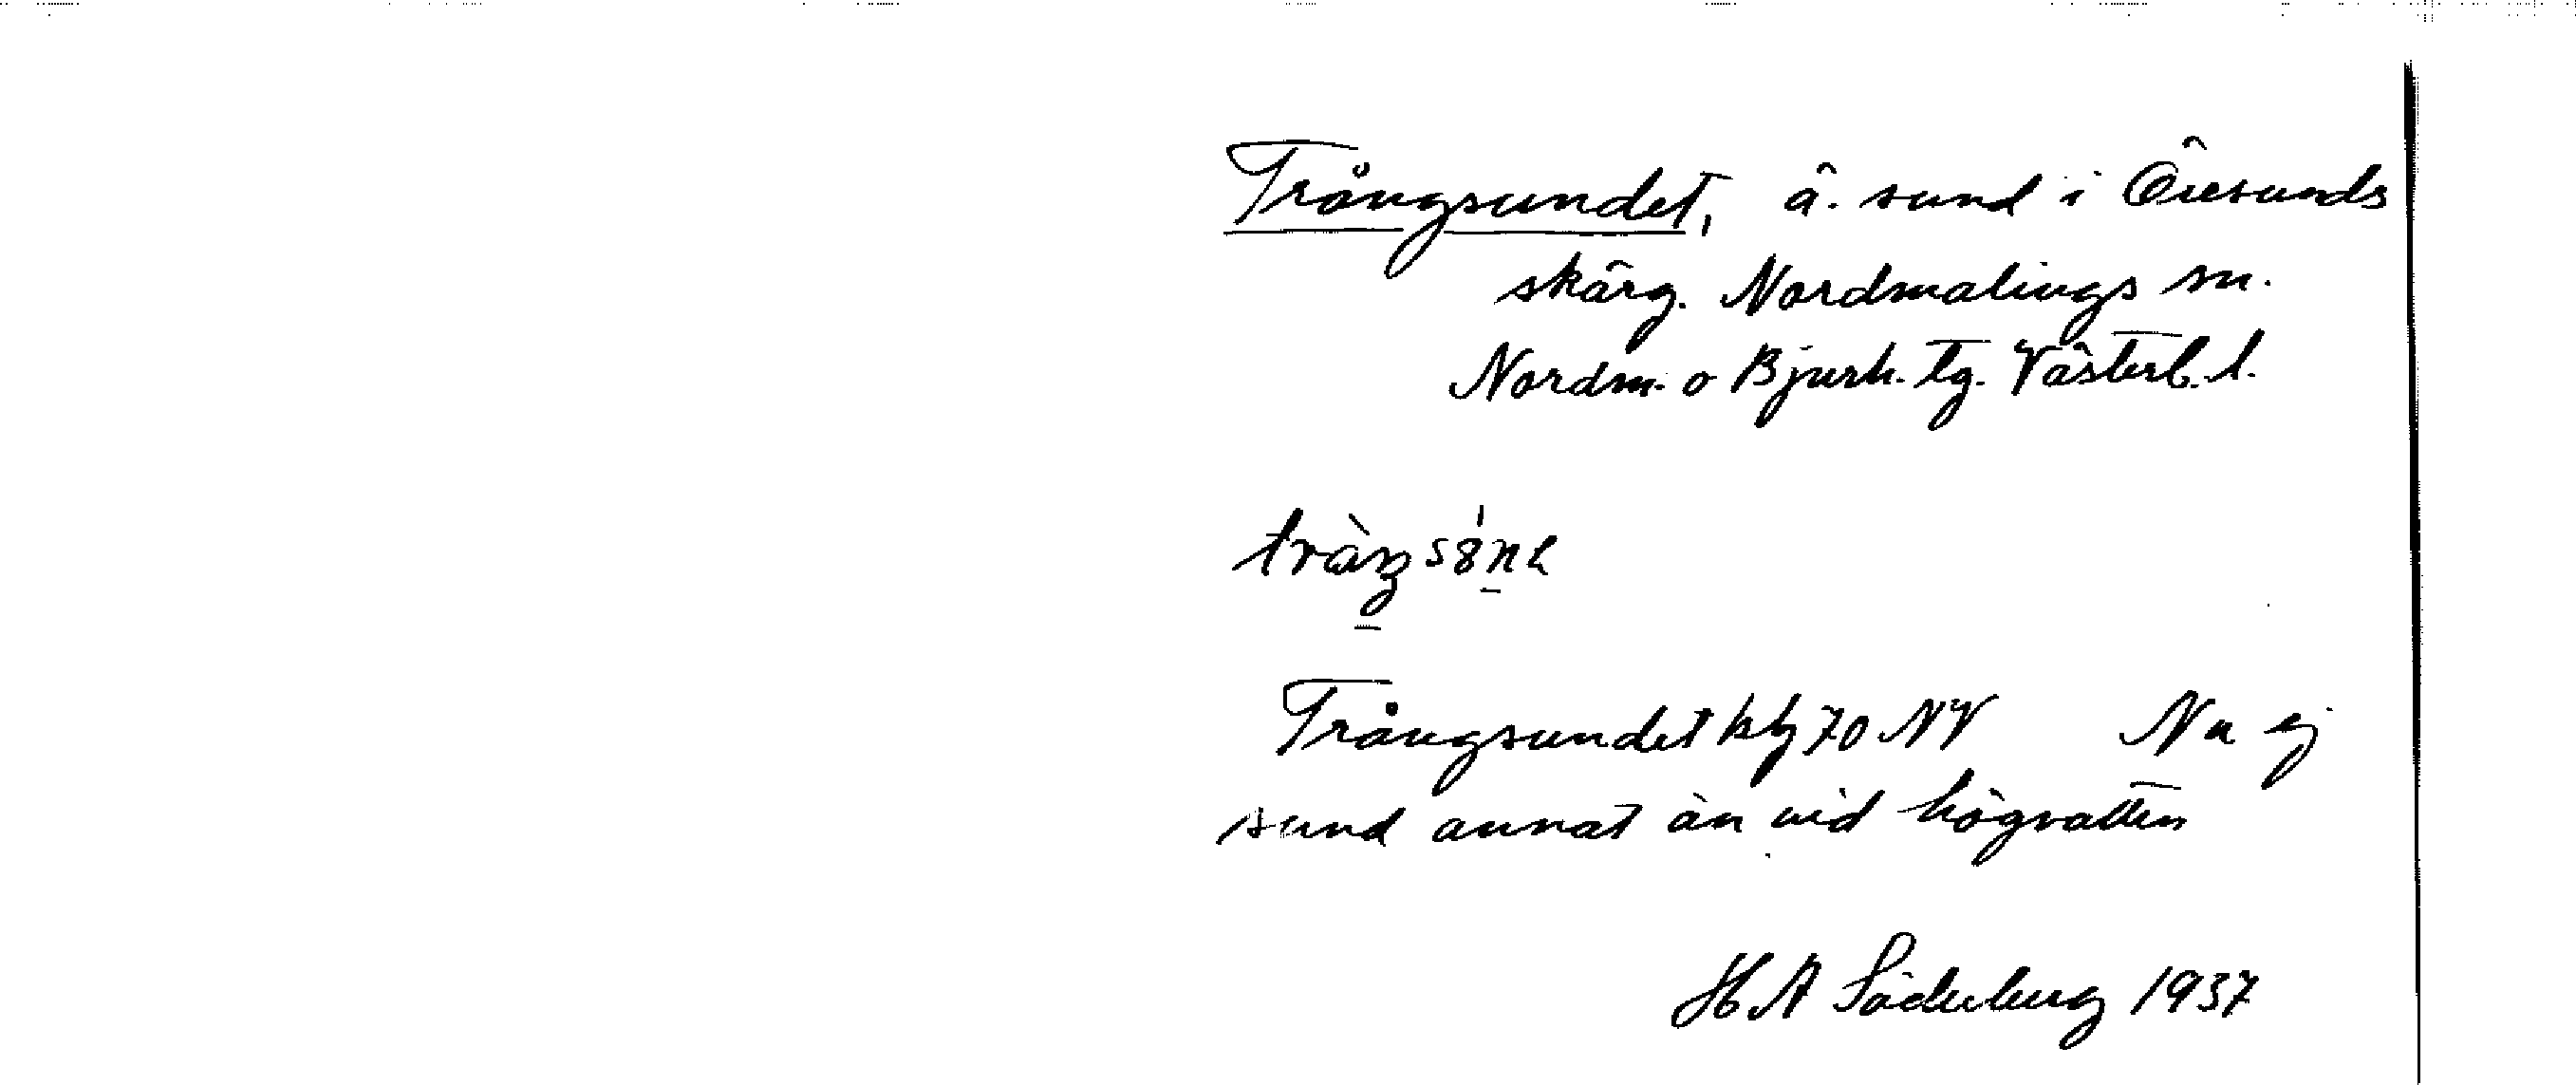 Trångsundet, ä. sund i Öresunds
skärg. Nordmalings sn.
Nordm. o Bjurh. tg. Västerb. l.
Trångsundet kbl 70 NV Nu ej
sund annat än vid högvatten
H A Söderberg 1937